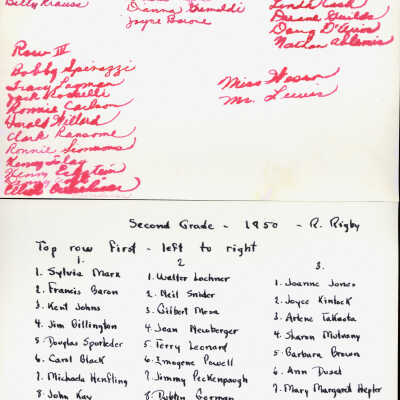 Billy Krauss
Joyce Boone
Linda Cash
Duane Guilds
Row III
Bobby Spinozzi
Tracy
Jack
Ronnie Carlson
Gerald Willard
Clark Ransome
Ronnie
Henry
Henry Eckstein
Miss Wesson
Mr. Lewis
Second Grade - 1950 - R. Rigby
Top row first - left to right
1.
1. Sylvia Marx
2. Francis Baron
3. Kent Johns
4. Jim Billington
5. Douglas Sporleder
6. Carol Black
7. Michaela Henfling
8. John Kay
2
1. Walter Lochner
2. Neil Snider
3. Gilbert Mesa
4. Jean Newberger
5. Terry Leonard
6. Imogene Powell
7. Jimmy Peckenpaugh
8. Gorman
3.
1. Joanne Jones
2. Joyce Kinlock
3. Arlene Takaota
4. Sharon Mulvany
5. Barbara Brown
6. Ann Duset
7. Mary Margaret Hepler